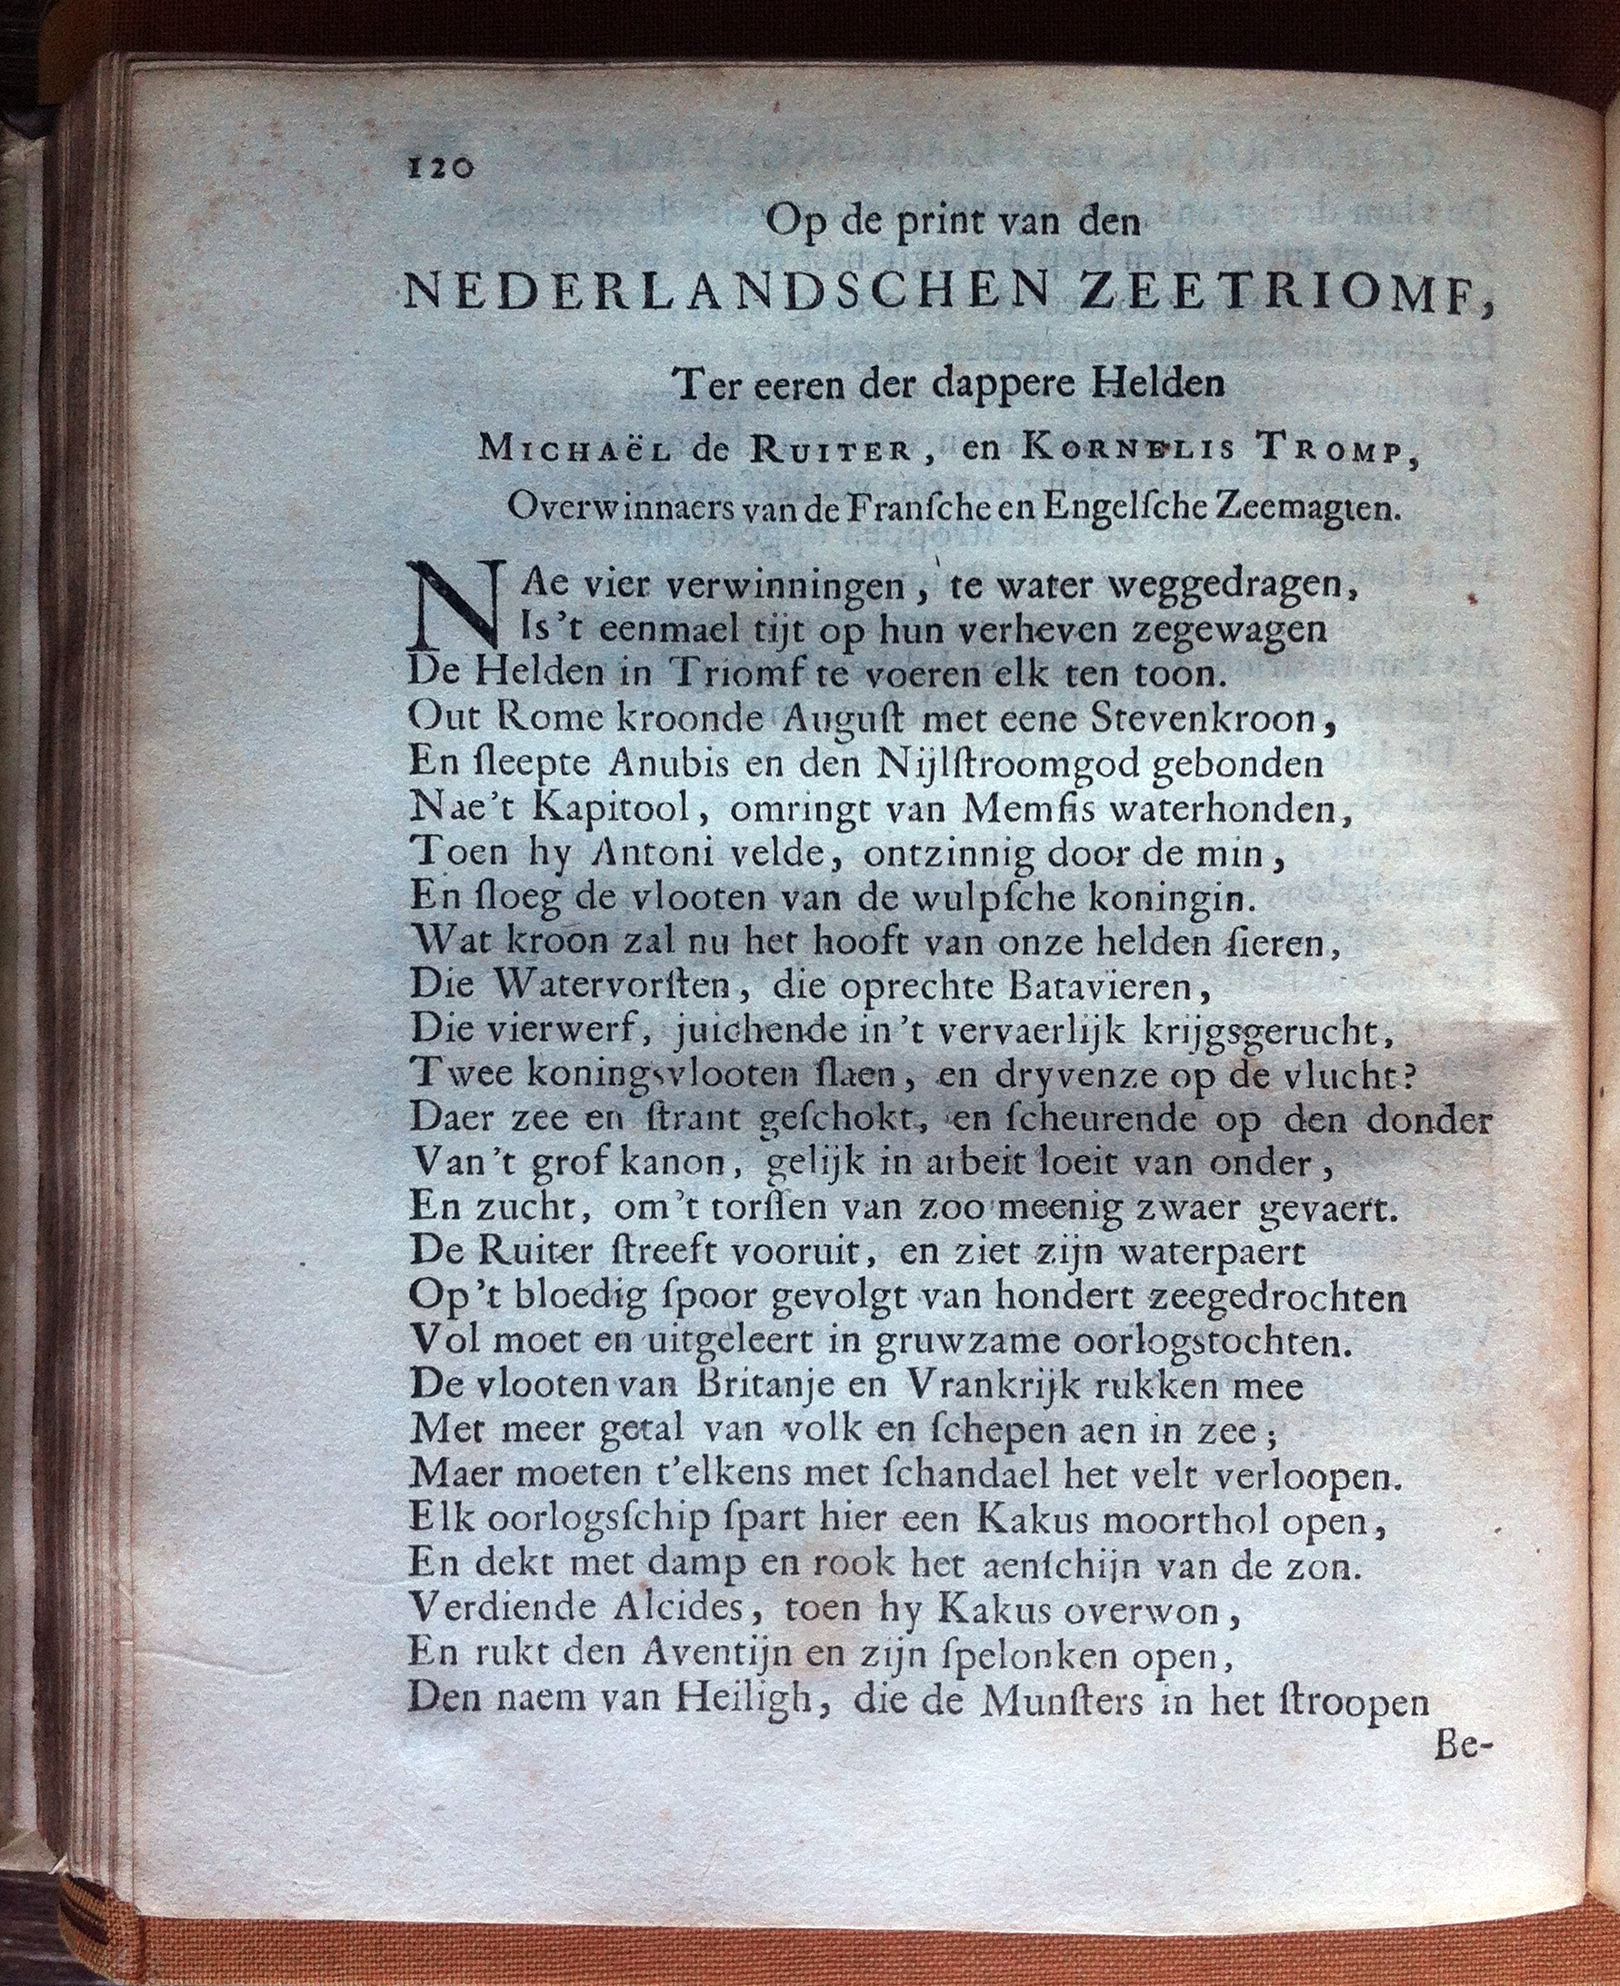 120
Op de print van den
NEDERLANDSCHEN ZEETRIOMF,
Ter eeren der dappere Helden
MICHAËL de RUITER, en KORNELIS TROMP,
Overwinnaers van de Franſche en Engelſche Zeemagten.
NAe vier verwinningen, te water weggedragen,
Is't eenmael tijt op hun verheven zegewagen
De Helden in Triomf te voeren elk ten toon.
Out Rome kroonde Auguſt met eene Stevenkroon,
En ſleepte Anubis en den Nijlſtroomgod gebonden
Nae't Kapitool, omringt van Memfis waterhonden,
Toen hy Antoni velde, ontzinnig door de min,
En ſloeg de vlooten van de wulpſche koningin.
Wat kroon zal nu het hooft van onze helden ſieren,
Die Watervorſten, die oprechte Batavieren,
Die vierwerf, juichende in 't vervaerlijk krijgsgerucht,
Twee koningsvlooten ſlaen, en dryvenze op de vlucht?
Daer zee en ſtrant geſchokt, en ſcheurende op den donder
Van 't grof kanon, gelijk in arbeit loeit van onder,
En zucht, om 't torſſen van zoo meenig zwaer gevaert.
De Ruiter ſtreeft vooruit, en ziet zijn waterpaert
Op 't bloedig ſpoor gevolgt van hondert zeegedrochten
Vol moet en uitgeleert in gruwzame oorlogstochten.
De vlooten van Britanje en Vrankrijk rukken mee
Met meer getal van volk en ſchepen aen in zee;
Maer moeten t'elkens met ſchandael het velt verloopen.
Elk oorlogsſchip ſpart hier een Kakus moorthol open,
En dekt met damp en rook het aenſchijn van de zon.
Verdiende Alcides, toen hy Kakus overwon,
En rukt den Aventijn en zijn ſpelonken open,
Den naem van Heiligh, die de Munſters in het ſtroopen
Be-